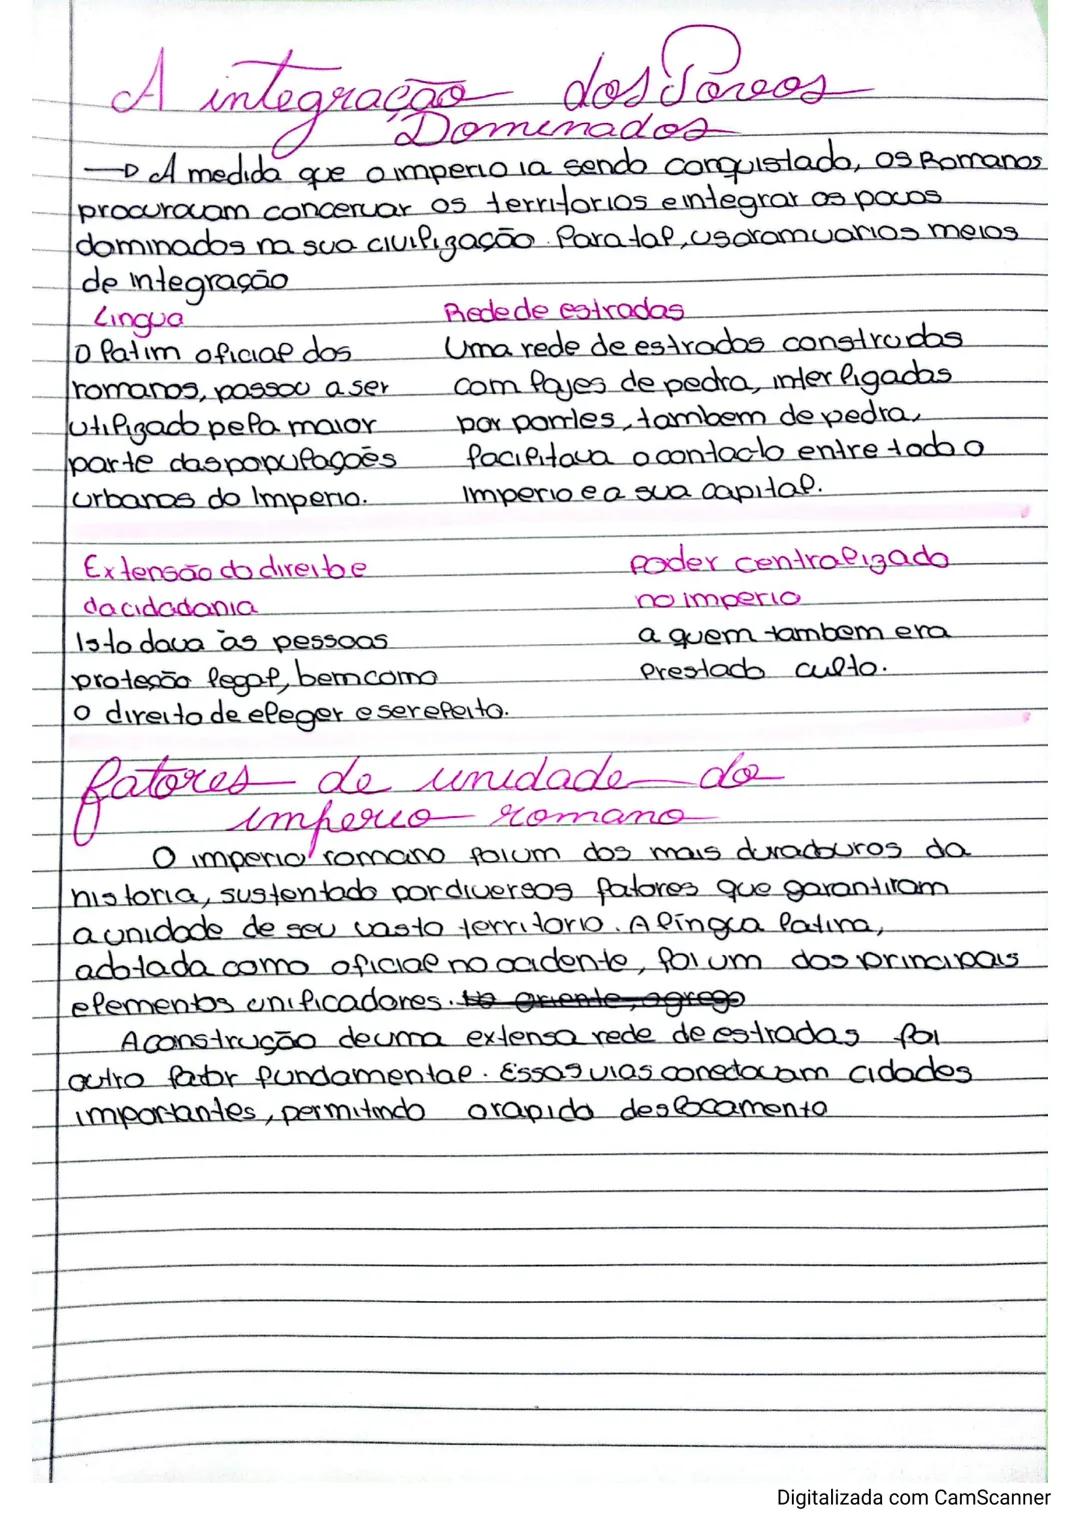 A integração dos Povos
Dominados
→ A medida que o imperio ia sendo conquistado, os Romanos
procuravam concervar os territorios e integrar os povos
dominados na sua civilização. Para tal, usaram varios meios
de integração
Lingua
O latim oficial dos
romanos, passou a ser
utilizado pela maior
parte das populaçoẽs
urbanas do Imperio.
Rede de estradas
Uma rede de estradas construidas
com lajes de pedra, interligadas
por pontes, tambem de pedra,
facilitava o contacto entre todo o
Imperio e a sua capital.
Extensão do direito e
da cidadania
Isto dava às pessoas
proteção legal, bem como
o direito de eleger e ser eleito.
Poder centralizado
no imperio
a quem tambem era
Prestado culto.
fatores de unidade do
imperio romano
O imperio romano foi um dos mais duradouros da
historia, sustentado por diversos fatores que garantiram
a unidade de seu vasto territorio. A língua latina,
adotada como oficial no ocidente, foi um dos principais
elementos unificadores. No oriente, o grego
A construção de uma extensa rede de estradas foi
outro fator fundamental. Essas vias conectavam cidades
importantes, permitindo o rapido deslocamento
Digitalizada com CamScanner